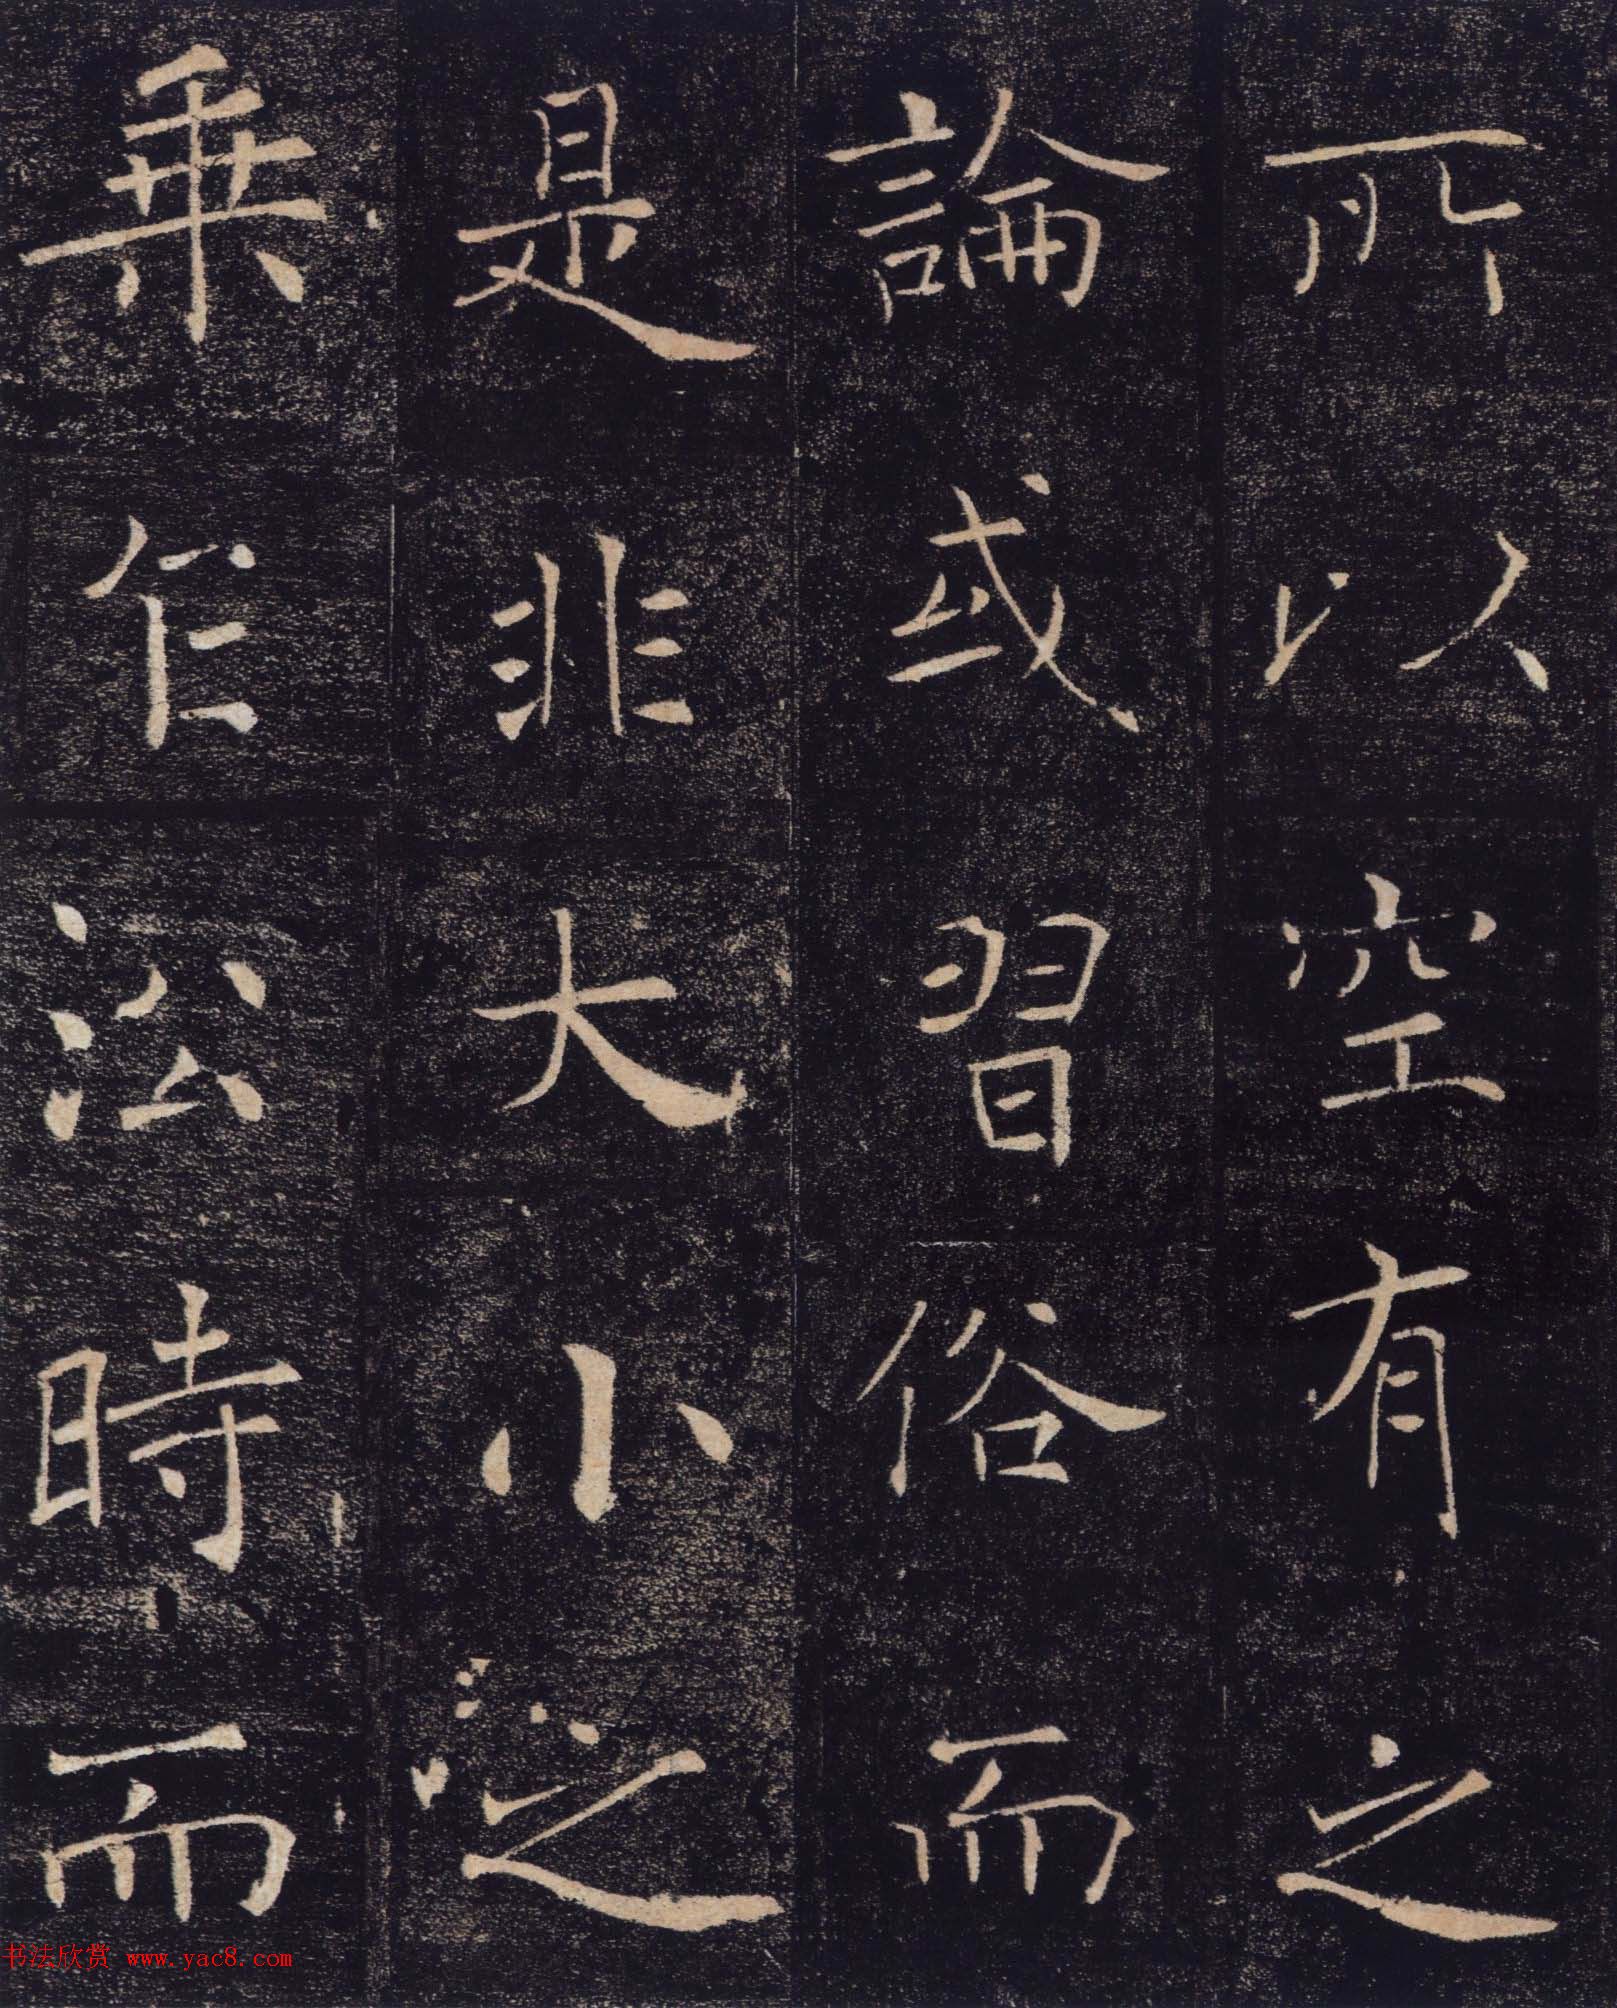 所以空有之
論或習俗而
是非大小之
乗乍㳂時而
书法欣赏 www.yac8.com